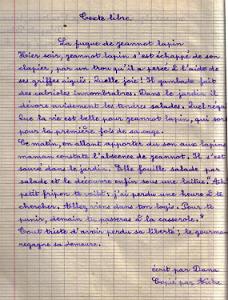 Texte libre
La fugue de jeannot lapin
Hier soir, jeannot lapin s'est échappé de son
clapier, par un trou qu'il a percé à l'aide de
ses griffes aiguës. Quelle joie! Il gambade fait
des cabrioles innombrables. Dans le jardin il
dévore avidement les tendres salades. Quel régal
Que la vie est belle pour jeannot lapin, qui sort
pour la première fois de sa cage.
Ce matin, en allant apporter du son aux lapins
maman constate l'absence de jeannot. Il s'est
sauvé dans le jardin. Elle fouille salade par
salade et le découvre enfin sous une laitue! Ah
petit fripon te voilà; j'ai perdu une heure à te
chercher. Allez viens dans ton logis. Pour te
punir, demain tu passeras à la casserole."
Tout triste d'avoir perdu sa liberté; le gourmand
regagne sa demeure.
écrit par Dana
Copié par